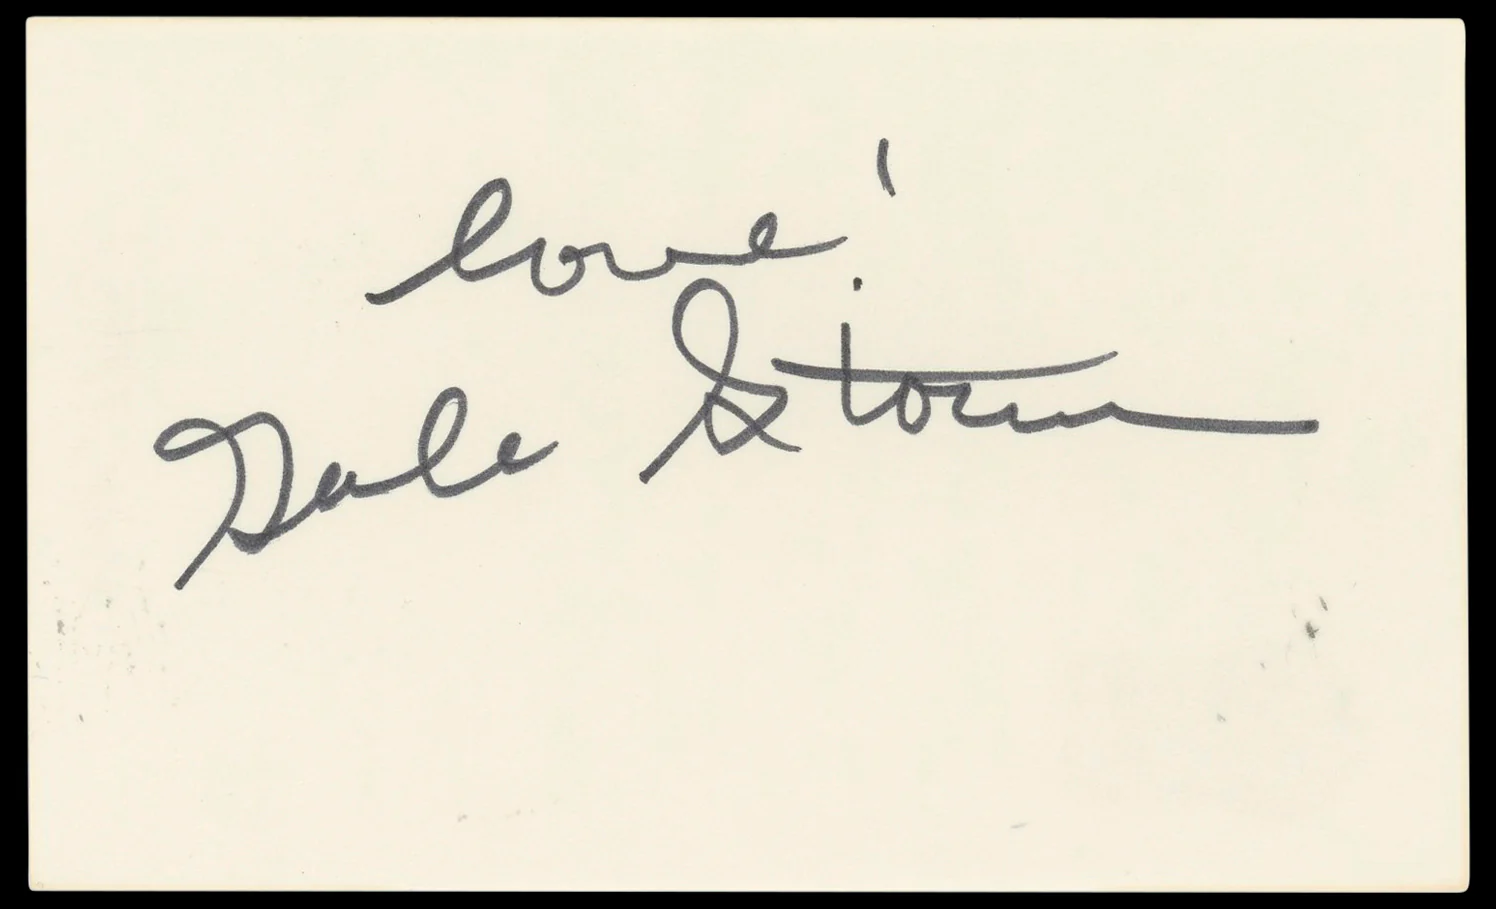 love!
Gale Storm